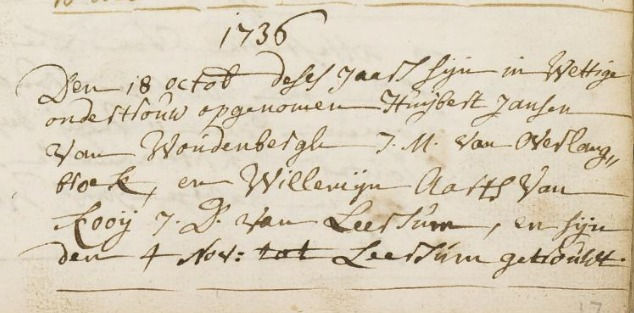 1736
Den 18 octob deses Jaars sijn in Wettige
ondertrouw opgenomen Huijbert Jansen
van Woudenbergh J. M. van Overlang„
broek, en Willemijn Aarts van
Kooij J. D. van Leersum, en sijn
den 4 Nov: tot Leersum getrouwt.
17